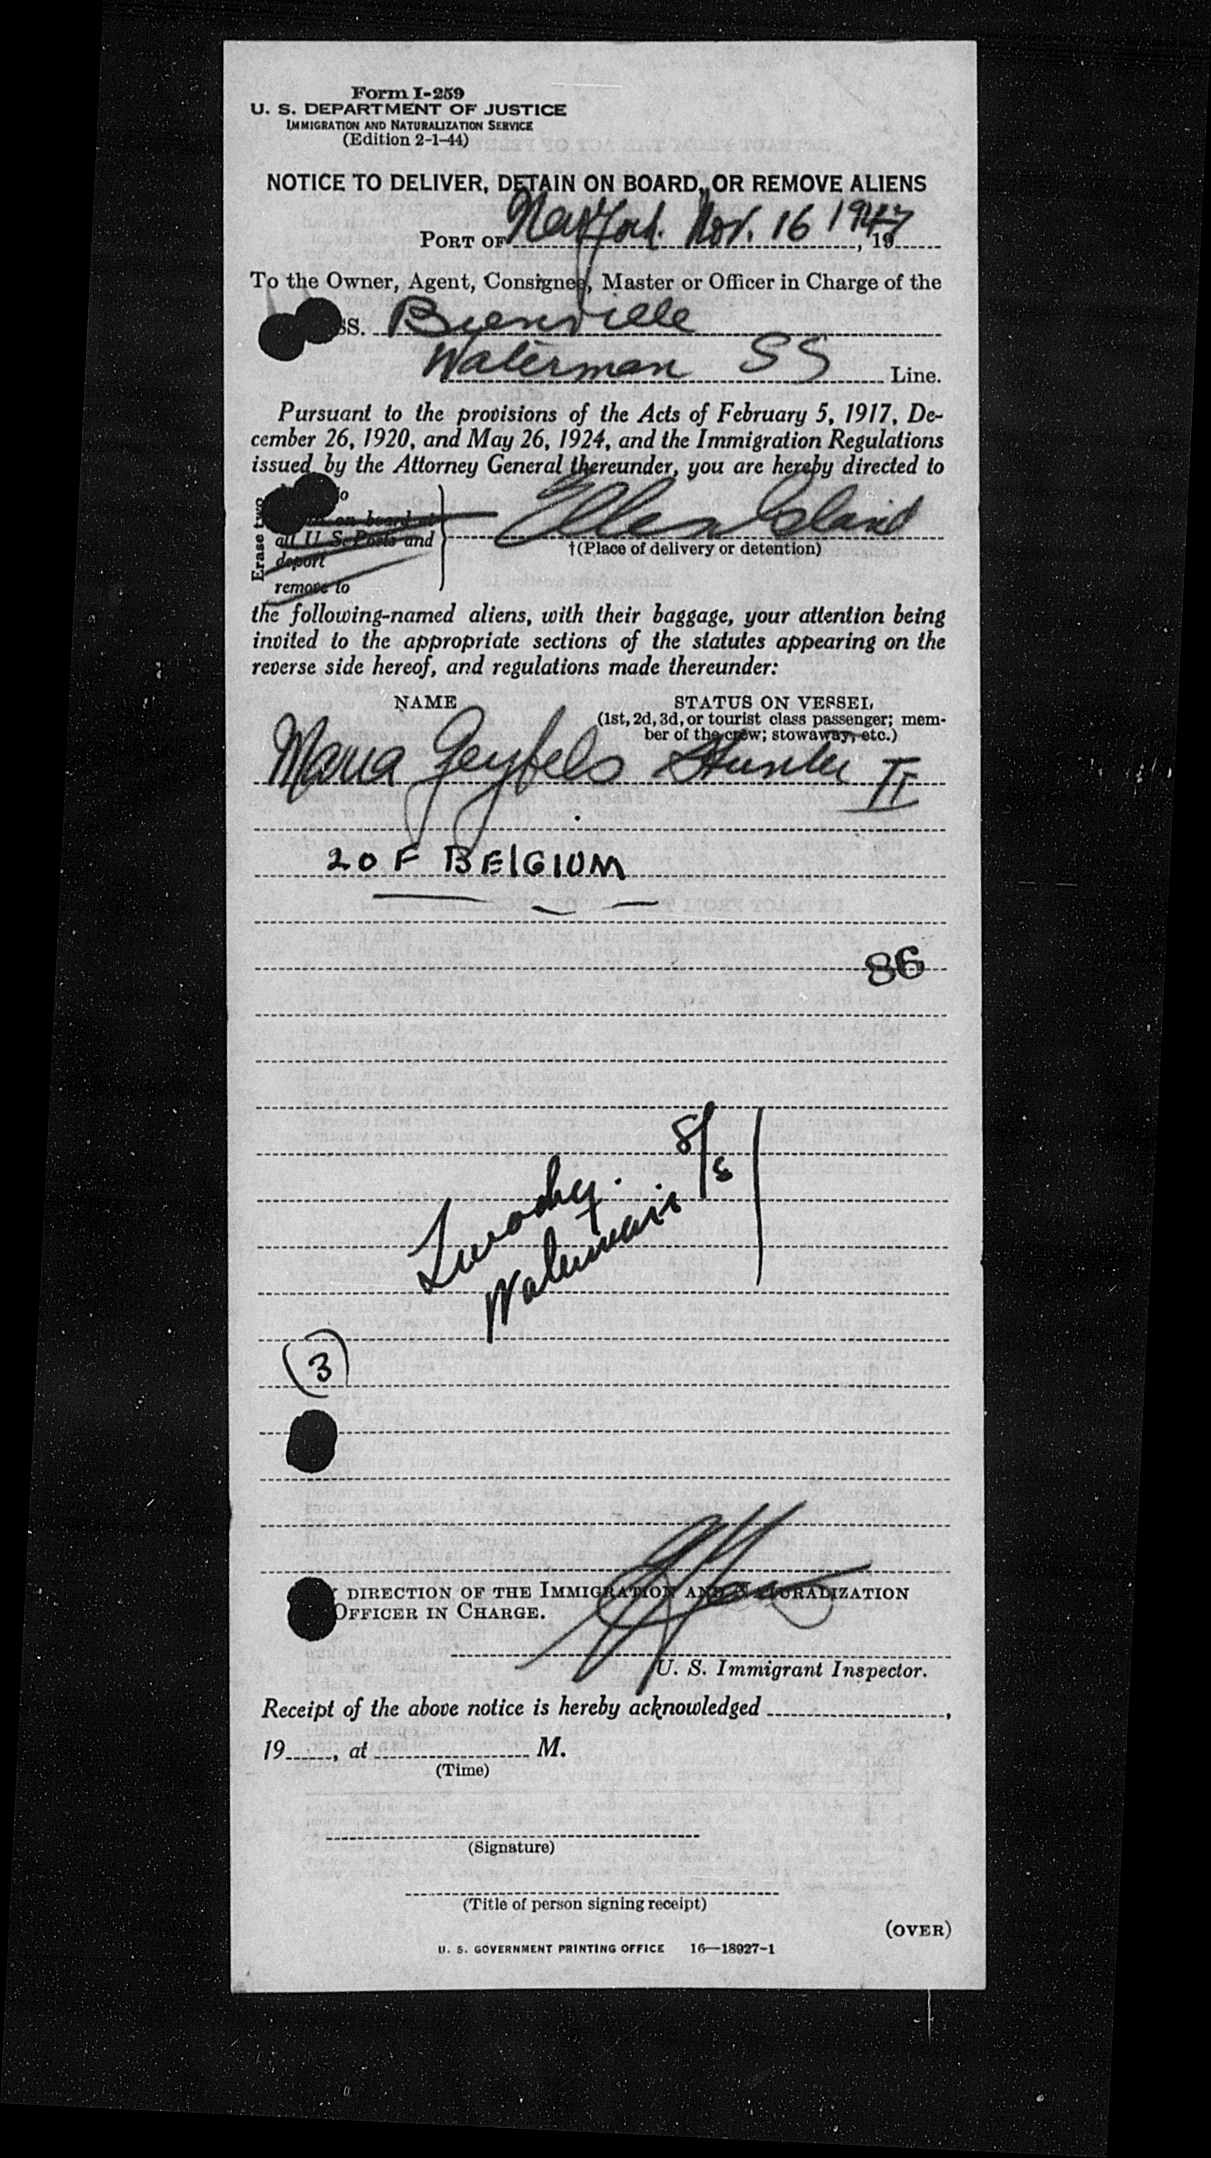 Form I-259
U. S. DEPARTMENT OF JUSTICE
IMMIGRATION AND NATURALIZATION SERVICE
(Edition 2-1-44)
NOTICE TO DELIVER, DETAIN ON BOARD, OR REMOVE ALIENS
PORT OF New York. Nov. 16 1947, 19
To the Owner, Agent, Consignee, Master or Officer in Charge of the
SS. Bienville
Waterman SS Line.
Pursuant to the provisions of the Acts of February 5, 1917, De-
cember 26, 1920, and May 26, 1924, and the Immigration Regulations
issued by the Attorney General thereunder, you are hereby directed to
Erase two
on board at
all U. S. Ports and
deport
remove to
Ellis Island
†(Place of delivery or detention)
the following-named aliens, with their baggage, your attention being
invited to the appropriate sections of the statutes appearing on the
reverse side hereof, and regulations made thereunder:
NAME
STATUS ON VESSEL
(1st, 2d, 3d, or tourist class passenger; mem-
ber of the crew; stowaway, etc.)
Maria Geyfels II
20 F BELGIUM
86
Waterman
8/8
3
DIRECTION OF THE IMMIGRATION AND NATURALIZATION
OFFICER IN CHARGE.
U. S. Immigrant Inspector.
Receipt of the above notice is hereby acknowledged ,
19 , at M.
(Time)
(Signature)
(Title of person signing receipt)
(OVER)
U. S. GOVERNMENT PRINTING OFFICE 16—18927-1